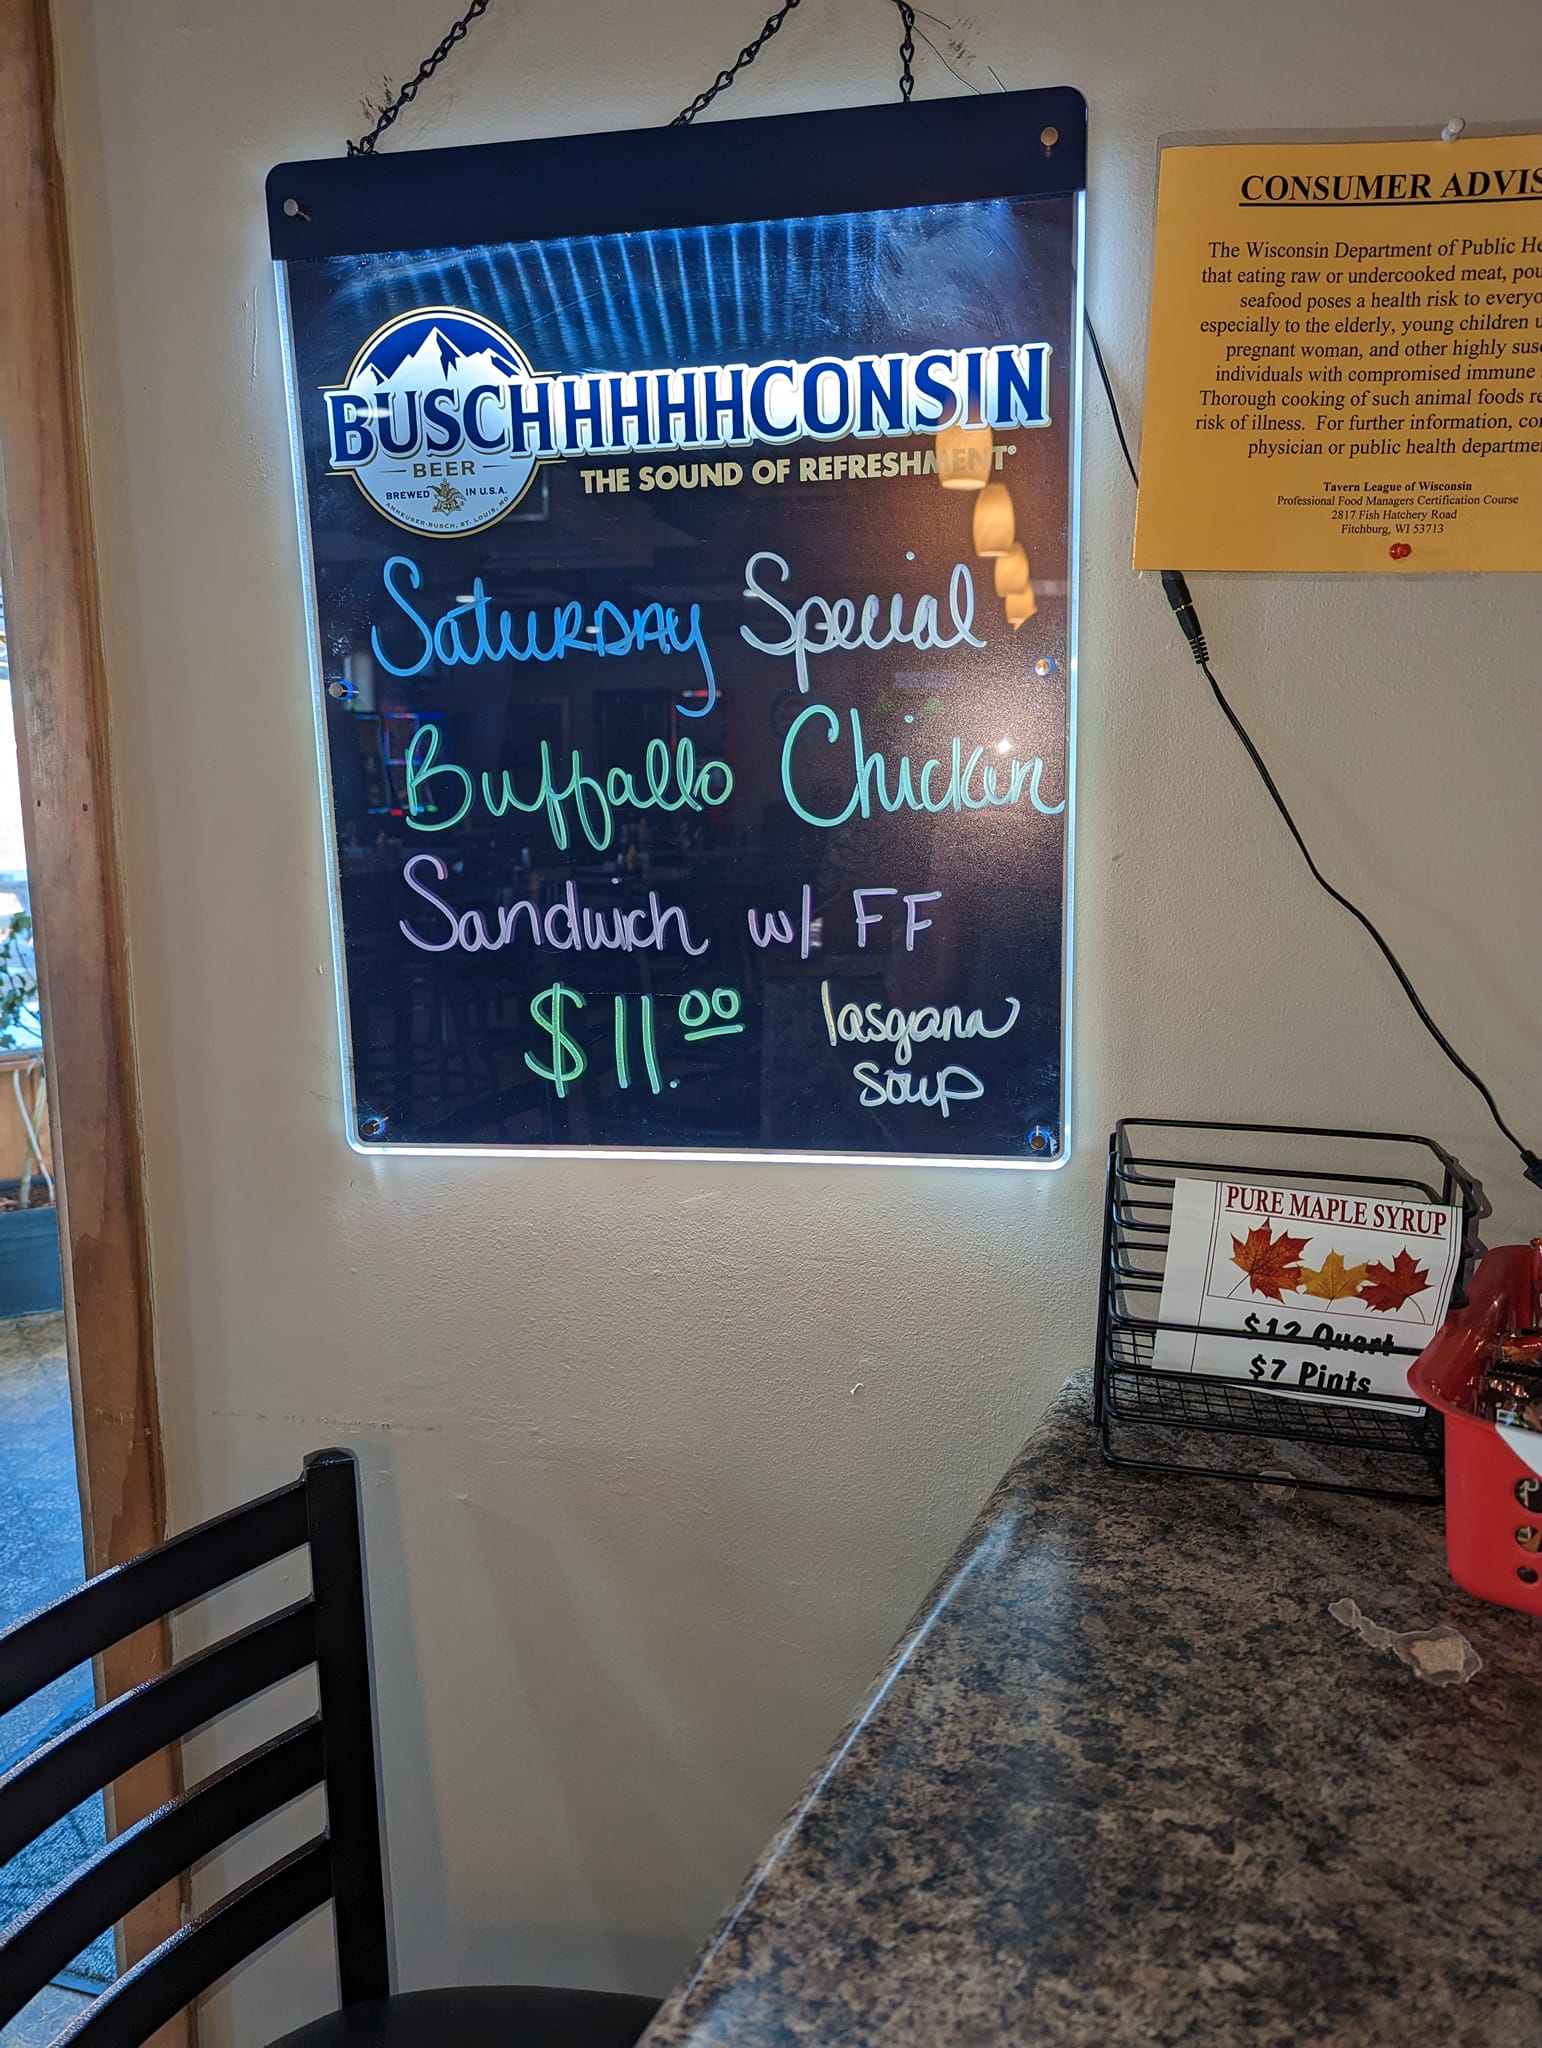 BUSCHHHHHCONSIN
BEER
BREWED IN U.S.A.
ANHEUSER-BUSCH, ST. LOUIS, MO
THE SOUND OF REFRESHMENT®
Saturday Special
Buffallo Chicken
Sandwich w/ FF
$11.00 lasgana
soup
CONSUMER ADVIS
The Wisconsin Department of Public He
that eating raw or undercooked meat, pou
seafood poses a health risk to everyo
especially to the elderly, young children u
pregnant woman, and other highly sus
individuals with compromised immune
Thorough cooking of such animal foods re
risk of illness. For further information, con
physician or public health departme
Tavern League of Wisconsin
Professional Food Managers Certification Course
2817 Fish Hatchery Road
Fitchburg, WI 53713
PURE MAPLE SYRUP
$12 Quart
$7 Pints